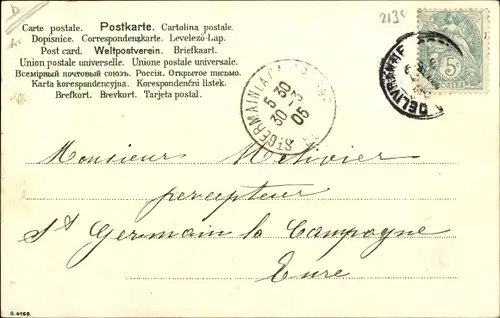 2135
Carte postale. Postkarte. Cartolina postale.
Dopisnice. Correspondenzkarte. Levelező-Lap.
Post card. Weltpostverein. Briefkaart.
Union postale universelle. Unione postale universale.
Всемірный почтовый союзъ. Россія. Открытое письмо.
Karta korespondencyjna. Korespondenční listek.
Brefkort. Brevkort. Tarjeta postal.
5
POSTES
DELIVRANDE
ST GERMAIN LA
5 30
30 -3
05
Monsieur Métivier
percepteur
St Germain la Campagne
Eure
S. 4169.